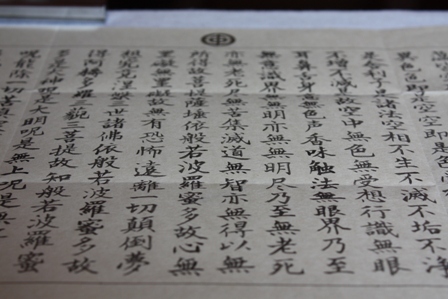 異色色即是空空即是
是舍利子是諸法空相不生不滅不垢不淨
不增不減是故空中無色無受想行識無眼
耳鼻舌身意無色声香味触法無眼界乃至
無意識界無無明亦無無明尽乃至無老死
亦無老死尽無苦集滅道無智亦無得以無
所得故菩提薩埵依般若波羅蜜多故心無
罣礙無罣礙故無有恐怖遠離一切顛倒夢
想究竟涅槃三世諸佛依般若波羅蜜多故
得阿耨多羅三藐三菩提故知般若波羅蜜
多是大神呪是大明呪是無上呪是無
呪能除一切苦